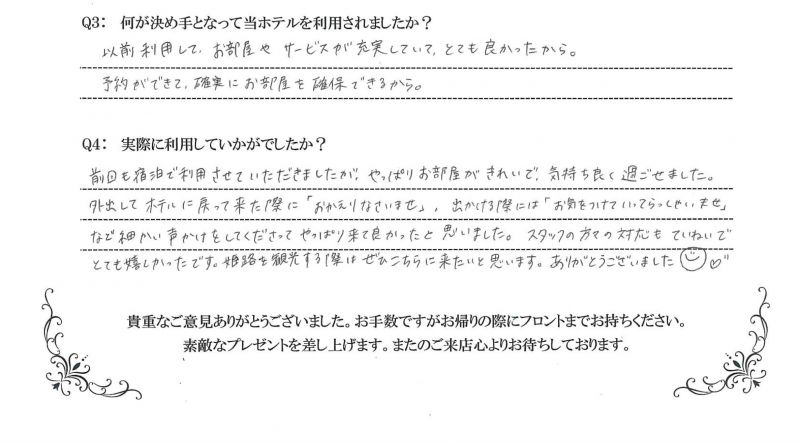 Q3: 何が決め手となって当ホテルを利用されましたか？
以前利用して、お部屋や サービスが充実していて、とても良かったから。
予約ができて、確実にお部屋を確保できるから。
Q4: 実際に利用していかがでしたか？
前回も宿泊で利用させていただきましたが、やっぱりお部屋がきれいで、気持ち良く過ごせました。
外出してホテルに戻って来た際に「おかえりなさいませ」、出かける際には「お気をつけていってらっしゃいませ」
など細かい声かけをしてくださってやっぱり来て良かったと思いました。スタッフの方々の対応もていねいで
とても嬉しかったです。姫路を観光する際はぜひこちらに来たいと思います。ありがとうございました
貴重なご意見ありがとうございました。お手数ですがお帰りの際にフロントまでお持ちください。
素敵なプレゼントを差し上げます。またのご来店心よりお待ちしております。